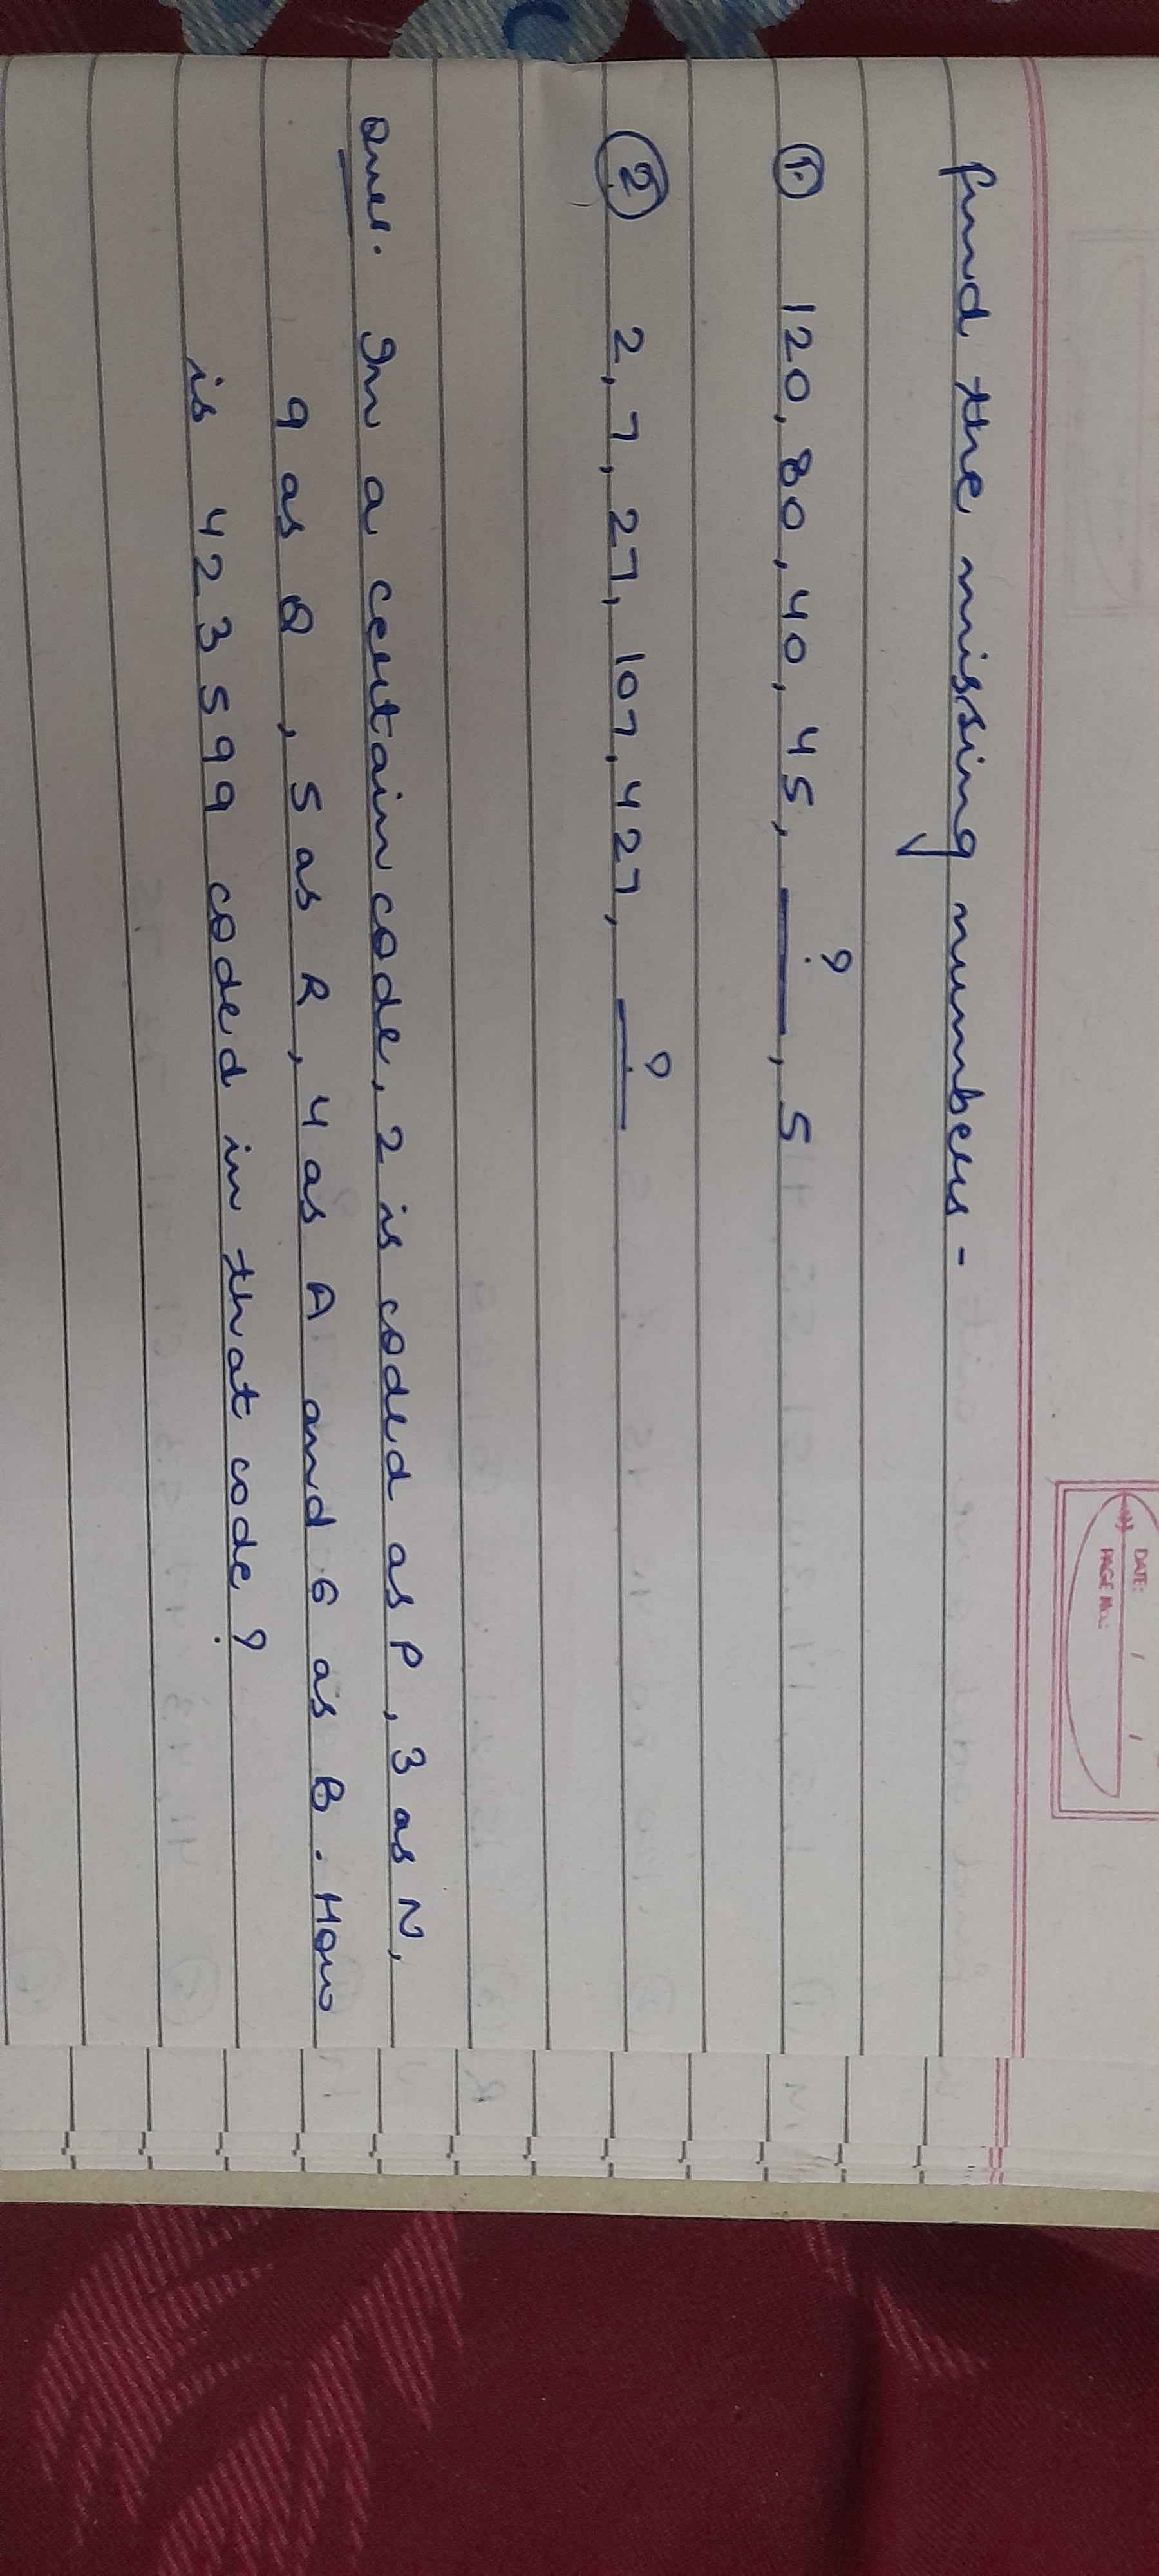 DATE: / /
PAGE No.:
find the missing numbers -
1. 120, 80, 40, 45, ?, 5
2 2, 7, 27, 107, 427, ?
Ques. In a certain code, 2 is coded as P, 3 as N,
9 as Q, 5 as R, 4 as A and 6 as B. How
is 423599 coded in that code?